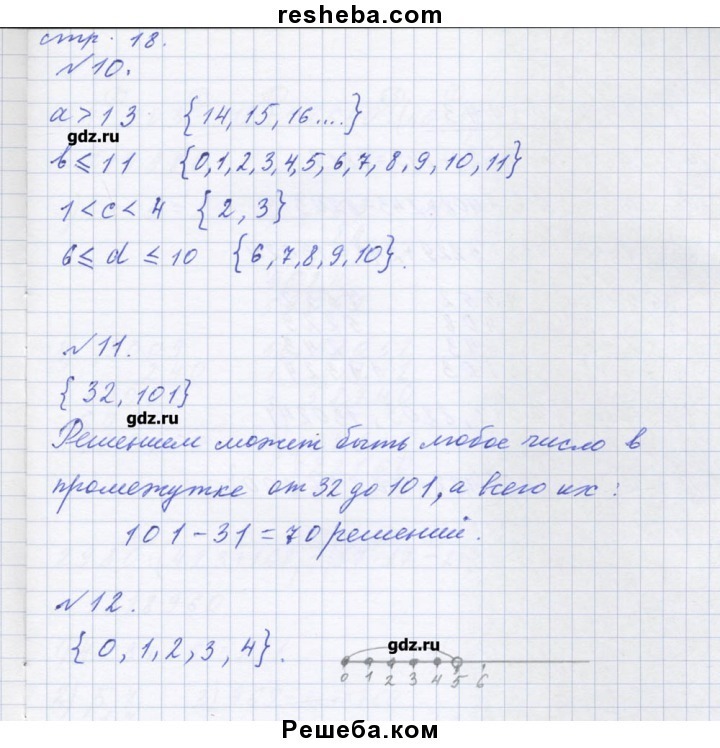 resheba.com
стр. 18.
№10.
a > 13 {14, 15, 16....}
gdz.ru
b ≤ 11 {0,1,2,3,4,5,6,7,8,9,10,11}
1 < c < 4 {2, 3}
6 ≤ d ≤ 10 {6,7,8,9,10}.
№11.
{32, 101}
gdz.ru
Решением может быть любое число в
промежутке от 32 до 101, а всего их:
101 - 31 = 70 решений.
№12.
{0, 1, 2, 3, 4}.
gdz.ru
0 1 2 3 4 5 6
Решеба.ком